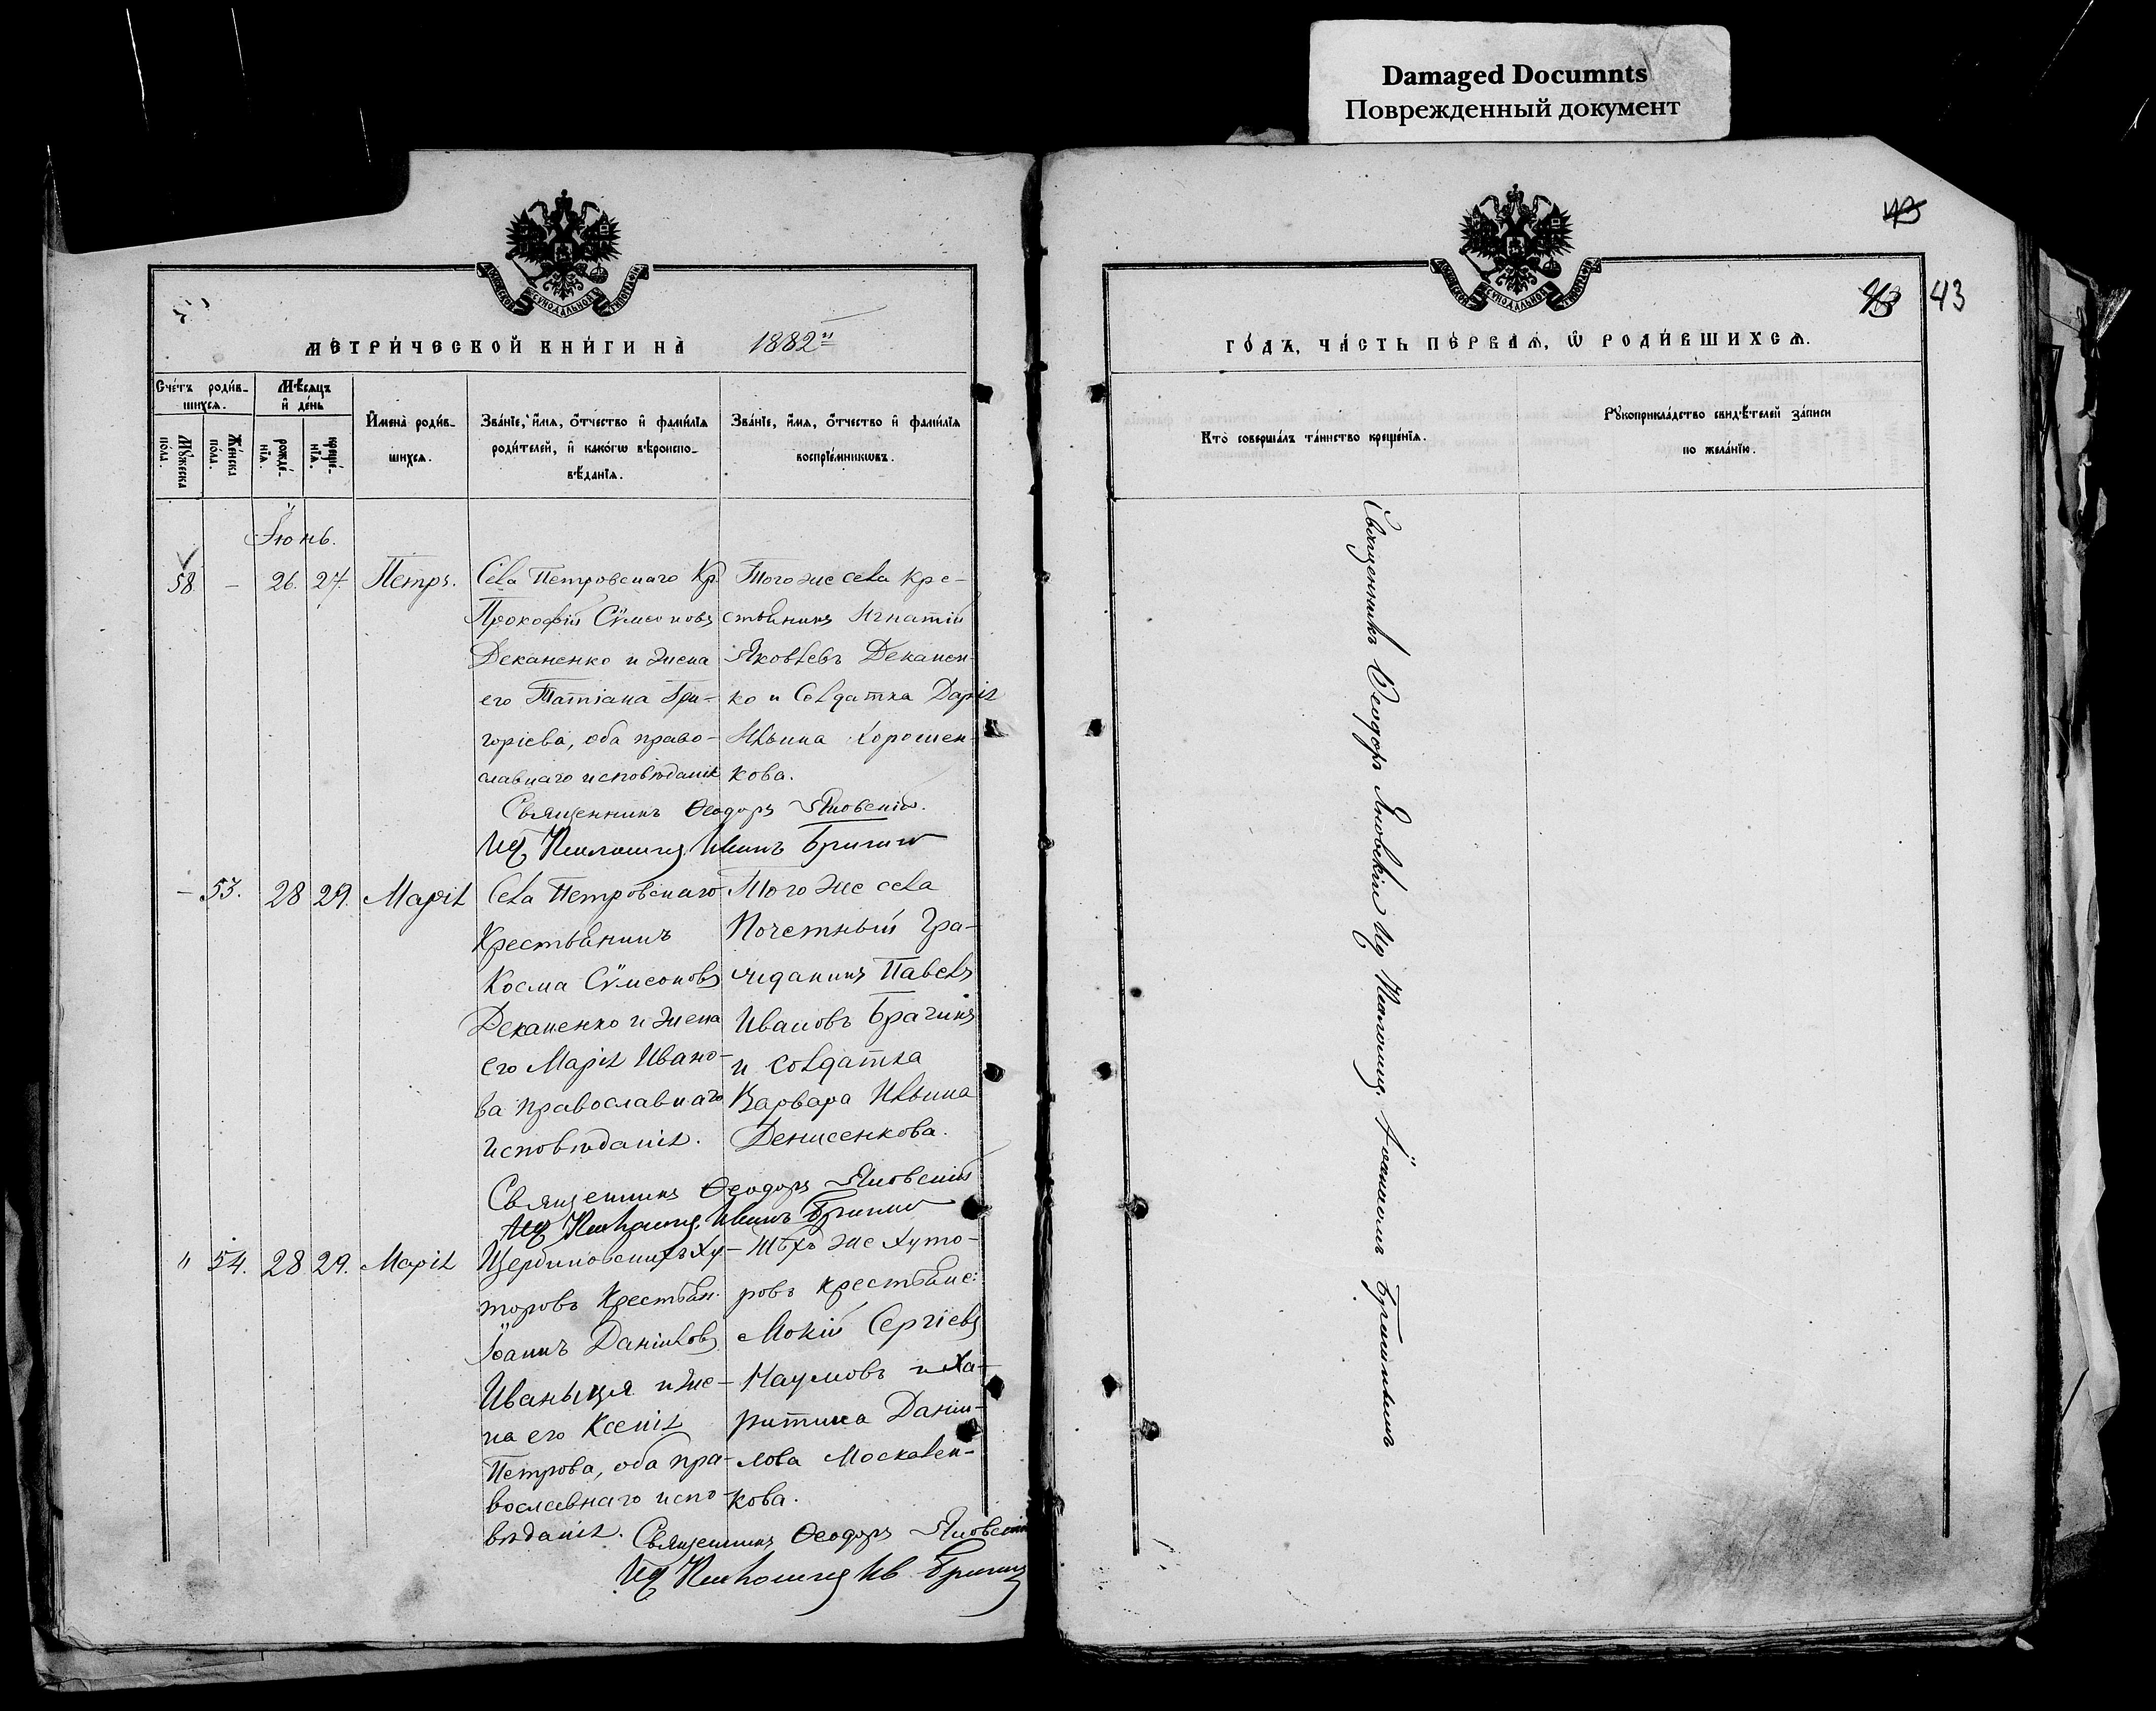 Damaged Documnts
Поврежденный документ
МЕТРИЧЕСКОЙ КНИГИ НА 1882й
Счетъ родив-
шихся.
Мѣсяцъ
и день
Мужеска пола.
Женска пола.
рожде-
нія.
креще-
нія.
Имена родив-
шихся.
Званіе, имя, отчество и фамилія
родителей, и какогѡ вѣроиспо-
вѣданія.
Званіе, имя, отчество и фамилія
воспріемникѡвъ.
Іюнь.
58. – 26. 27. Петръ.
Села Петровскаго Кр.
Прокофій Сѵмеоновъ
Деканенко и жена
его Татіана Гри-
горіева, оба право-
славнаго исповѣданія
Того же села Кре-
стьянинъ Игнатій
Яковлевъ Деканен-
ко и Солдатка Дарія
Ильина Хорошен-
кова.
Священникъ Ѳеодоръ Яновскій.
– 53. 28 29. Марія
Села Петровскаго
Крестьянинъ
Косма Сѵмеоновъ
Деканенко и жена
его Марія Ивано-
ва православнаго
исповѣданія.
Того же села
Почетный Гра-
жданинъ Павелъ
Ивановъ
и солдатка
Варвара Ильина
Денисенкова.
Священникъ Ѳеодоръ Яновскій
" 54. 28 29. Марія
Щербиновскихъ Ху-
торовъ Крестьян.
Іоаннъ Даніиловъ
Иваныця и же-
на его Ксенія
Петрова, оба пра-
вославнаго испо-
вѣданія.
Тѣхъ же Хуто-
ровъ крестьяне:
Мокій Сергіевъ
Наумовъ и Ха-
ритина Даніи-
лова Москален-
кова.
Священникъ Ѳеодоръ Яновскій
43
43
43
ГОДЪ, ЧАСТЬ ПЕРВАЯ, Ѡ РОДИВШИХСЯ.
Кто совершалъ таинство крещенія.
Рукоприкладство свидѣтелей записи
по желанію.
Священникъ Ѳеодоръ Яновскій